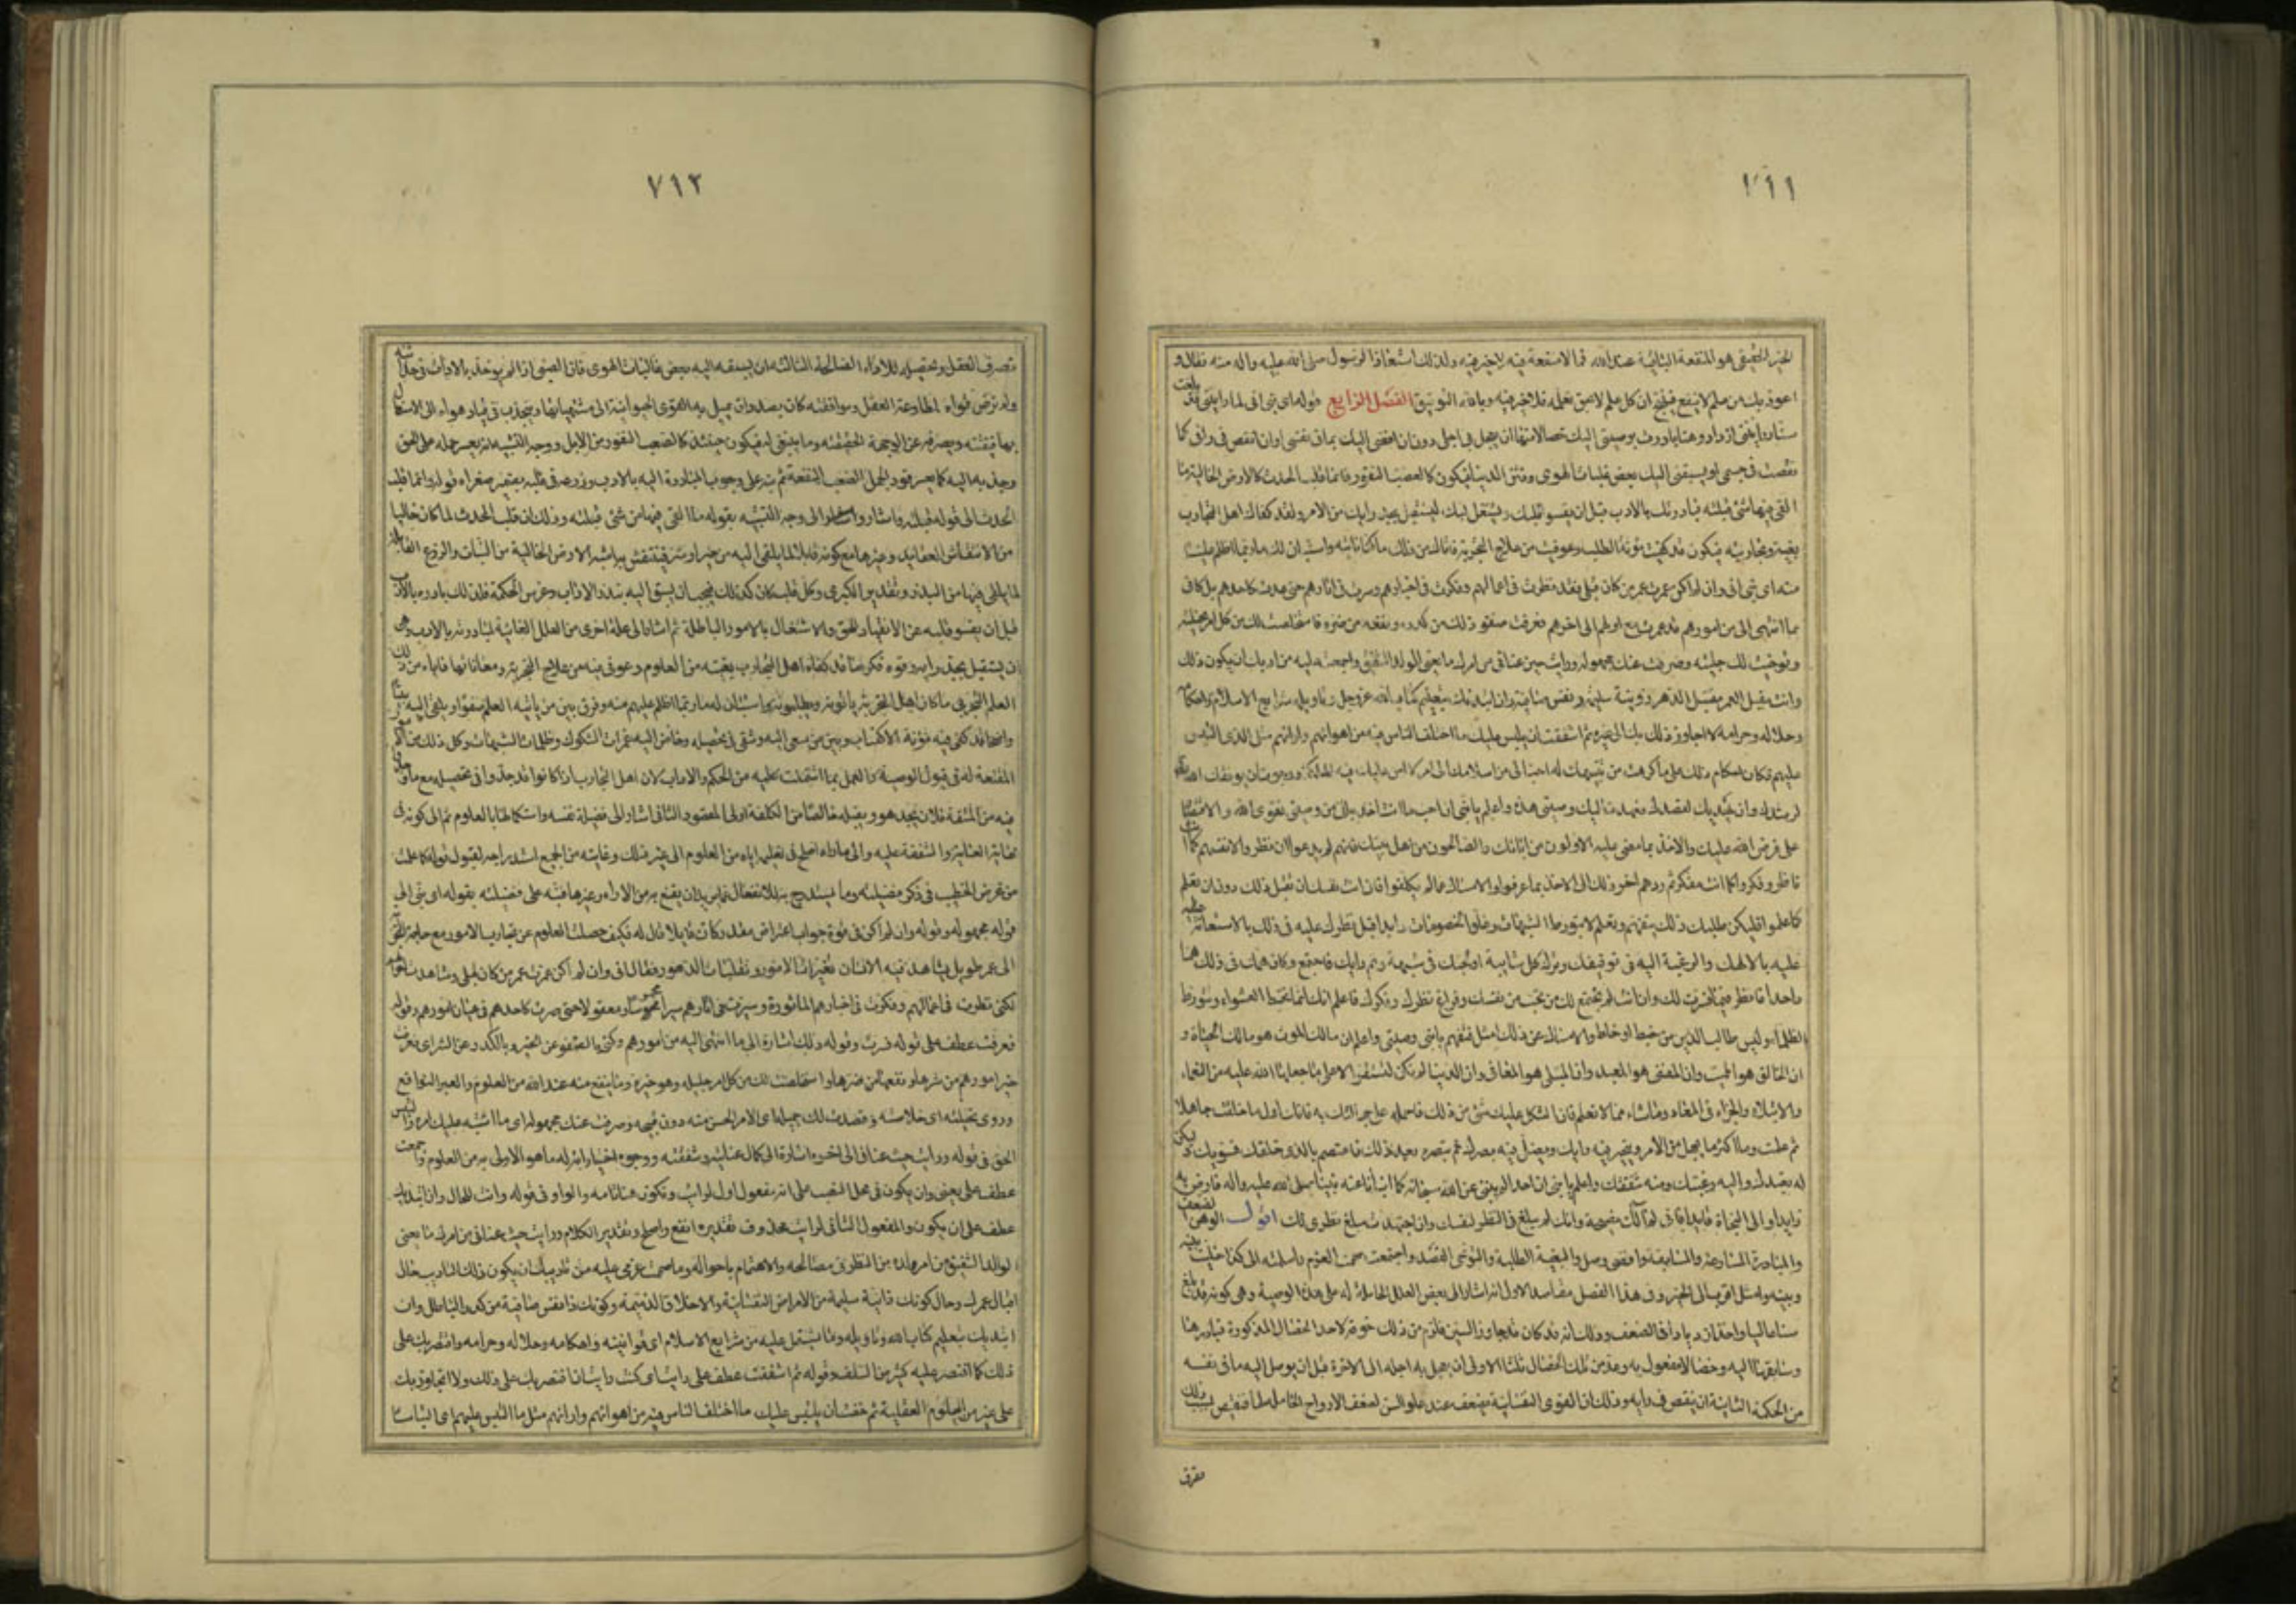 ٧١١
الخير الحقيقى هو المنفعة الباقية عند الله فما لا منفعة فيه لا خير فيه ولذلك استعاذ الرسول صلى الله عليه واله منه فقال و
اعوذ بك من علم لا ينفع وان كل علم لا يحق تعلمه فلا خير فيه وبالله التوفيق الفصل الرابع قوله اى بنى انى لما رايتنى قد بلغت
سنا ورايتنى ازداد وهنا بادرت بوصيتى اليك خصالا منها ان يعجل بى اجلى دون ان افضى اليك بما فى نفسى او ان انقص فى رائى كما
نقصت فى جسمى او يسبقنى اليك بعض غلبات الهوى وفتن الدنيا فتكون كالصعب النفور وانما قلب الحدث كالارض الخالية ما
القى فيها من شئ قبلته فبادرتك بالادب قبل ان يقسو قلبك ويشتغل لبك لتستقبل بجد رايك من الامر ما قد كفاك اهل التجارب
بغيته وتجربته فتكون قد كفيت مؤنة الطلب وعوفيت من علاج التجربة فاتاك من ذلك ما كنا ناتيه واستبان لك ما ربما اظلم علينا
منه اى بنى انى وان لم اكن عمرت عمر من كان قبلى فقد نظرت فى اعمالهم وفكرت فى اخبارهم وسرت فى اثارهم حتى عدت كاحدهم بل كانى
بما انتهى الى من امورهم قد عمرت مع اولهم الى اخرهم فعرفت صفو ذلك من كدره ونفعه من ضرره فاستخلصت لك من كل امر نخيلته
وتوخيت لك جميله وصرفت عنك مجهوله ورايت حيث عنانى من امرك ما يعنى الوالد الشفيق واجمعت عليه من ادبك ان يكون ذلك
وانت مقبل العمر مقتبل الدهر ذو نية سليمة ونفس صافية وان ابتدئك بتعليم كتاب الله عز وجل وتاويله وشرايع الاسلام واحكامه
وحلاله وحرامه لا اجاوز ذلك بك الى غيره ثم اشفقت ان يلتبس عليك ما اختلف الناس فيه من اهوائهم وارائهم مثل الذى التبس
عليهم فكان احكام ذلك على ما كرهت من تنبيهك له احب الى من اسلامك الى امر لا امن عليك فيه الهلكة ورجوت ان يوفقك الله فيه
لرشدك وان يهديك لقصدك فعهدت اليك وصيتى هذه واعلم يا بنى ان احب ما انت اخذ به الى من وصيتى تقوى الله والاقتصار
على ما فرض الله عليك والاخذ بما مضى عليه الاولون من ابائك والصالحون من اهل بيتك فانهم لم يدعوا ان نظروا لانفسهم كما انت
ناظر وفكروا كما انت مفكر ثم ردهم اخر ذلك الى الاخذ بما عرفوا والامساك عما لم يكلفوا فان ابت نفسك ان تقبل ذلك دون ان تعلم
كما علموا فليكن طلبك ذلك بتفهم وتعلم لا بتورط الشبهات وغلو الخصومات وابدا قبل نظرك فى ذلك بالاستعانة
عليه بالاهك والرغبة اليه فى توفيقك وترك كل شايبة اولجتك فى شبهة وتم رايك فاجتمع وكان همك فى ذلك هما
واحدا فانظر فيما فسرت لك وان انت لم يجتمع لك ما تحب من نفسك وفراغ نظرك وفكرك فاعلم انك انما تخبط العشواء وتتورط
الظلماء وليس طالب الدين من خبط او خلط والامساك عن ذلك امثل فتفهم يا بنى وصيتى واعلم ان مالك الموت هو مالك الحياة و
ان الخالق هو المميت وان المفنى هو المعيد وان المبتلى هو المعافى وان الدنيا لم تكن لتستقر الا على ما جعلها الله عليه من النعماء
والابتلاء والجزاء فى المعاد وما شاء مما لا تعلم فان اشكل عليك شئ من ذلك فاحمله على جهالتك به فانك اول ما خلقت جاهلا
ثم علمت وما اكثر ما تجهل من الامر ويتحير فيه رايك ويضل فيه بصرك ثم تبصره بعد ذلك فاعتصم بالذى خلقك فسويك وليكن
له تعبدك واليه رغبتك ومنه شفقتك واعلم يا بنى ان احدا لم ينبئ عن الله سبحانه كما انبأ عنه نبينا صلى الله عليه واله فارض به
رايدا والى النجاة قايدا فانى لم آلك نصيحة وانك لم تبلغ فى النظر لنفسك وان اجتهدت مبلغ نظرى لك اقول الوهن الضعف
والمبادرة المسارعة والمسابقة وافضى وصل والبغية الطلبة والتوخى القصد واجمعت صممت العزم واسلمته الى كذا خليت بينه
وبينه وفى هذا الفصل مقاصد الاول انه اشار الى بعض العلل الحاملة له على هذه الوصية وهى كونه قد بلغ
سنا عاليا واخذ ازدياد فى الضعف وذلك انه قد كان جاوز الستين فلزم من ذلك خوفه لاحد الخصال المذكورة فبادر بها
وسابقها اليه وخصالا مفعول به وعد من تلك الخصال ثلثا الاولى ان يعجل به اجله الى الاخرة قبل ان يوصل اليه ما فى نفسه
من الحكمة الثانية ان ينقص فى رايه وذلك ان القوى النفسانية تضعف عند علو السن لضعف الارواح الحاملة لها فينقص بسبب ذلك
٧١٢
تصرف العقل وتحصيله للاراء الصالحة الثالثة ان يسبقه اليه بعض غلبات الهوى فان الصبى اذا لم يؤخذ بالاداب فى حداثته
ولم ترض قواه لمطاوعة العقل وموافقته كان بصدد ان يميل به القوى الحيوانية الى مشتهياتها وينجذب فى قياد هواه الى الاستعمال
بها فيفتنه ويصرفه عن الوجهة الحقيقية وما ينبغى له فيكون حينئذ كالصعب النفور من الابل ووجه التشبيه انه يعسر حمله على الحق
وجذبه اليه كما يعسر قود الجمل الصعب النفور ثم نبه على وجوب المبادرة اليه بالادب وزرعه فى قلبه بقوله وانما قلب
الحدث الى قوله قبلته واشار الى وجه التشبيه بقوله ما القى فيها من شئ قبلته وذلك ان قلب الحدث لما كان خاليا
من الانتقاش بالعقايد وغيرها مع كونه قابلا لما يلقى اليه من خير او شر فينتقش به اشبه الارض الخالية من النبات والزرع القابلة
لما يلقى فيها من البذر وتقدير الكبرى وكل قلب كان كذلك فيجب ان يسبق اليه ببذر الاداب وغرس الحكمة فلذلك بادره بالادب
قبل ان يقسو قلبه عن الانقياد للحق والاشتغال بالامور الباطلة ثم اشار الى علة اخرى من العلل الغائية لمبادرته بالادب وهى
ان يستقبل بجد رايه وقوة فكره ما قد كفاه اهل التجارب بغيته من العلوم وعوفى فيه من علاج التجربة ومعاناتها فاتاه من ذلك
العلم التجربى ما كان اهل التجربة ياتونه ويطلبونه واستبان له ما ربما اظلم عليهم منه وفرق بين من ياتيه العلم صفوا ويلقى اليه بينا
واضحا قد كفى فيه مؤنة الاكتساب وبين من سعى اليه وشقى فى تحصيله وخاض اليه غمرات الشكوك وظلمات الشبهات وكل ذلك من الامور
المقنعة له فى قبول الوصية والعمل بما اشتملت عليه من الحكم والاداب لان اهل التجارب اذا كانوا قد جدوا فى تحصيله مع ما
فيه من المشقة فلان يجده هو ويقبله خالصا من الكلفة اولى المقصود الثانى اشار الى فضيلة نفسه واستكمالها بالعلوم ثم الى كونه فى
غاية العناية والشفقة عليه والى ما راه اصلح فى تعليمه اياه من العلوم الى غير ذلك وغايته من الجميع استدراجه لقبول قوله كما علمت
من غرض الخطيب فى ذكر فضيلته وما يستدرج به للانفعال عما يريد ان يقنع به من الاراء وغيرها فنبه على فضيلته بقوله اى بنى الى
قوله مجهوله وقوله وان لم اكن فى قوة جواب اعتراض مقدر كأن قايلا قال له فكيف حصلت العلوم عن تجارب الامور مع حاجة التجربة
الى عمر طويل يشاهد فيه الانسان تغيرات الامور وتقلبات الدهور فقال انى وان لم اكن عمرت عمر من كان قبلى وشاهد
لكنى نظرت فى اعمالهم وفكرت فى اخبارهم الماثورة وسرت فى اثارهم سيرا محسوسا ومعقولا حتى صرت كاحدهم فى عيان امورهم وقوله
فعرفت عطف على قوله سرت وقوله ذلك اشارة الى ما انتهى اليه من امورهم وكنى بالصفو عن الخير وبالكدر عن الشر اى فعرف
خير امورهم من شرها ونفعها من ضرها واستخلصت لك من كل امر جليله وهو خيره وما ينتفع منه عند الله من العلوم والعبر النوافع
وروى نخيلته اى خلاصته وقصدت لك جميله اى الامر الحسن منه دون قبيحه وصرفت عنك مجهوله اى ما اشتبه عليك امره والتبس
الحق فى قوله ورايت حيث عنانى الى اخره اشارة الى كمال عنايته وشفقته ووجوه اختياراته له ما هو الاولى به من العلوم واجمعت
عطف على يعنى وان يكون فى محل النصب على انه مفعول اول لرايت وتكون هنا تامة والواو فى قوله وانت للحال وان ابتدئك
عطف على ان يكون والمفعول الثانى لرايت محذوف تقديره انفع واصلح وتقدير الكلام ورايت حيث عنانى من امرك ما يعنى
الوالد الشفيق من امر ولده من النظر فى مصالحه والاهتمام باحواله وما صممت عزمى عليه من تاديبك ان يكون ذلك التاديب حال
اقبال عمرك وحال كونك ذا نية سليمة من الامراض النفسانية والاخلاق الذميمة وكونك ذا نفس صافية من كدر الباطل وان
ابتديك بتعليم كتاب الله وتاويله وما يشتمل عليه من شرايع الاسلام اى قوانينه واحكامه وحلاله وحرامه واقتصر بك على
ذلك كما اقتصر عليه كثير من السلف وقوله ثم اشفقت عطف على رايت اى كنت رايت ان اقتصر بك على ذلك ولا اتجاوز بك
الى غيره من العلوم العقلية ثم خفت ان يلتبس عليك ما اختلف الناس فيه من اهوائهم وارائهم مثل ما التبس عليهم اى التباسا